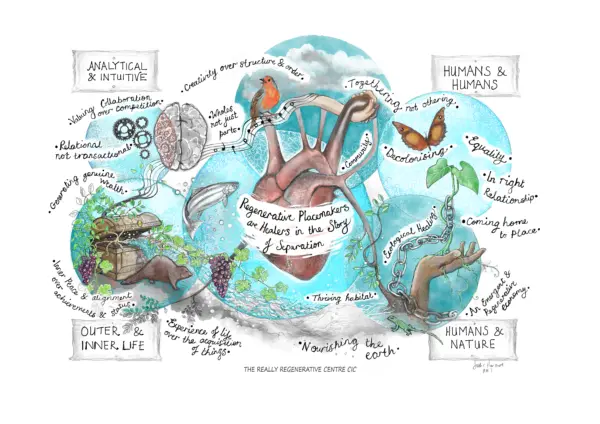 ANALYTICAL
& INTUITIVE
HUMANS &
HUMANS
• Creativity over structure & order •
Togethering not othering •
• Valuing Collaboration
over competition •
• Wholes,
not just
parts •
• Relational
not transactional •
• Community •
• Decolonising •
• Equality •
• Generating genuine
wealth •
• In right
Relationship •
Regenerative Placemakers
as Healers in the Story
of Separation
• Ecological Healing •
• Coming home
to Place •
• Inner Peace & alignment
over achievements & status •
• Thriving habitat •
• An Emergent &
Regenerative
Economy •
OUTER &
INNER LIFE
• Experience of life
over the acquisition
of things •
• Nourishing the
earth •
HUMANS &
NATURE
THE REALLY REGENERATIVE CENTRE CIC